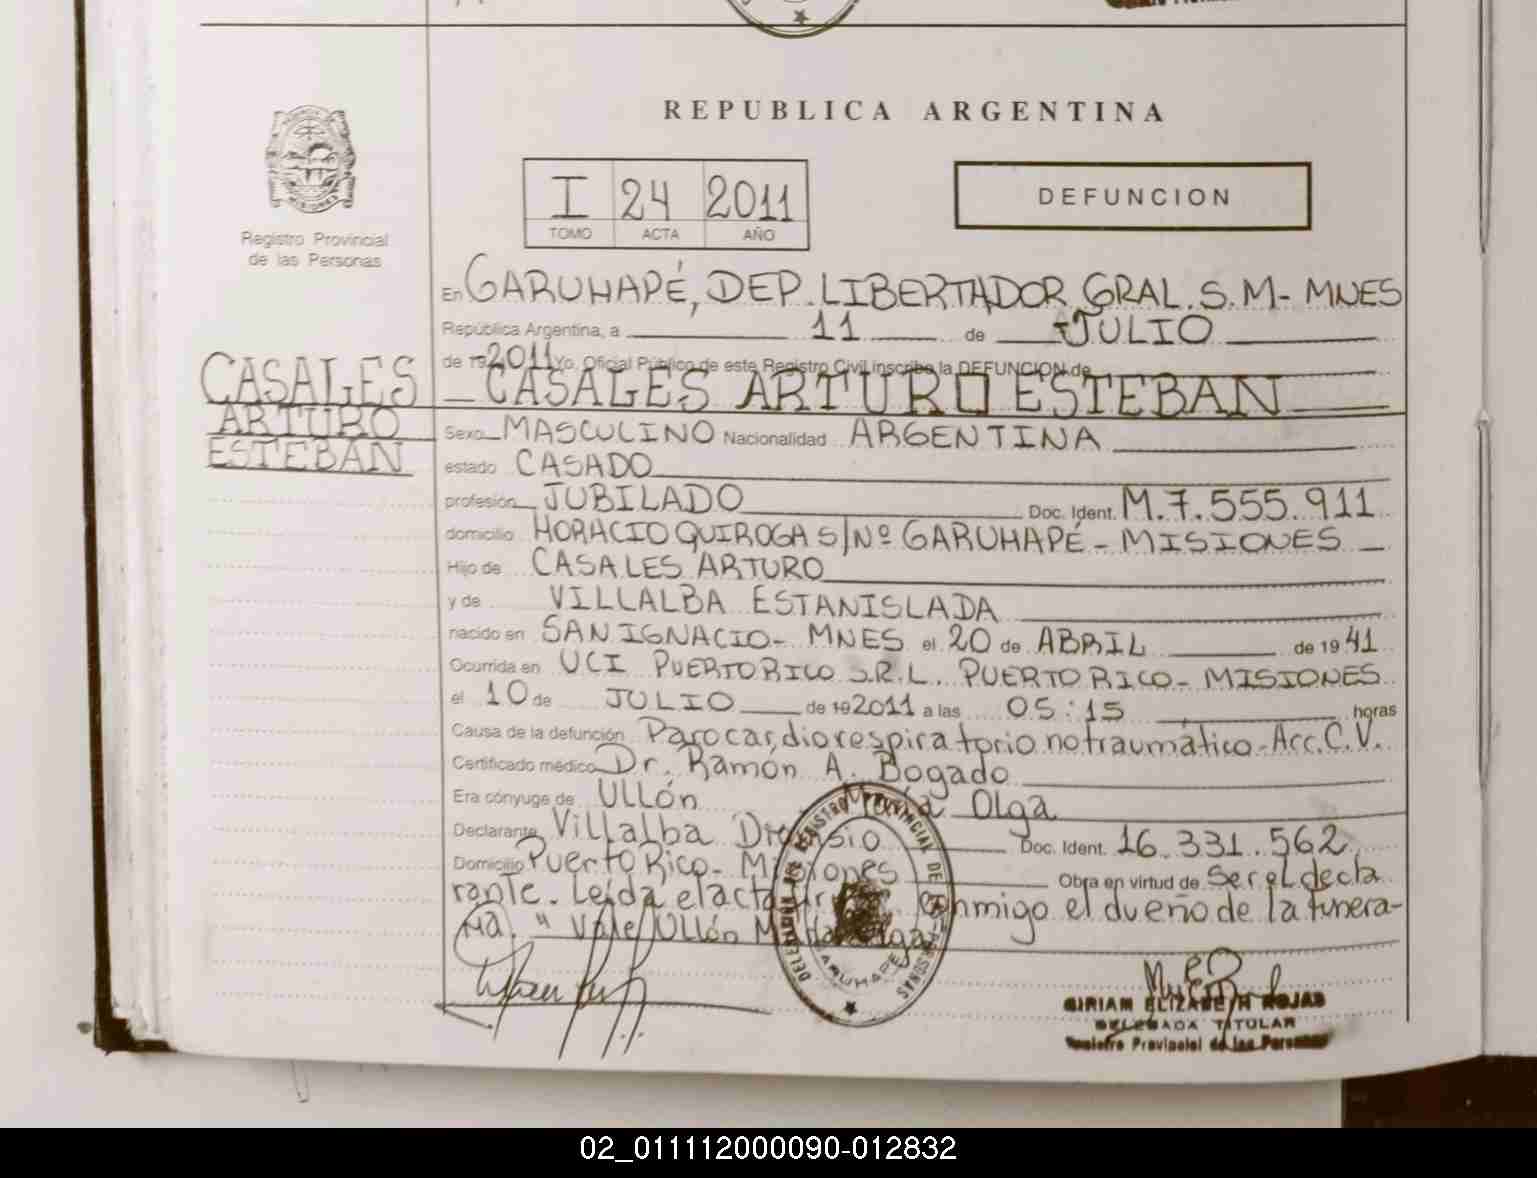 REPUBLICA ARGENTINA
MISIONES
Registro Provincial
de las Personas
I 24 2011
TOMO ACTA AÑO
DEFUNCION
En GARUHAPÉ, DEP. LIBERTADOR GRAL. S.M- MNES
República Argentina, a 11 de JULIO
de 19 2011 Yo, Oficial Público de este Registro Civil inscribo la DEFUNCION de
CASALES
ARTURO
ESTEBAN
CASALES ARTURO ESTEBAN
Sexo MASCULINO Nacionalidad ARGENTINA
estado CASADO
profesión JUBILADO Doc. Ident. M.7.555.911
domicilio HORACIO QUIROGA S/Nº GARUHAPÉ - MISIONES
Hijo de CASALES ARTURO
y de VILLALBA ESTANISLADA
nacido en SAN IGNACIO - MNES el 20 de ABRIL de 19 41
Ocurrida en UCI PUERTO RICO S.R.L. PUERTO RICO - MISIONES
el 10 de JULIO de 19 2011 a las 05:15 horas
Causa de la defunción Parocardiorespiratorio no traumático - Acc.C.V.
Certificado médico Dr. Ramón A. Bogado
Era cónyuge de Ullón María Olga
Declarante Villalba Dionisio Doc. Ident. 16.331.562
Domicilio Puerto Rico - Misiones Obra en virtud de Ser el decla
rante. Leída el acta conmigo el dueño de la funera-
ria. "Vale Ullón María Olga
DELEGACION DEL REGISTRO PROVINCIAL DE LAS PERSONAS
GARUHAPE
MIRIAM ELIZABETH ROJAS
DELEGADA TITULAR
Registro Provincial de las Personas
02_011112000090-012832